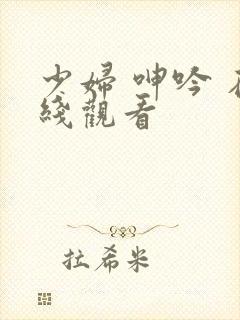 少婦 呻吟
綫觀看
拉希米